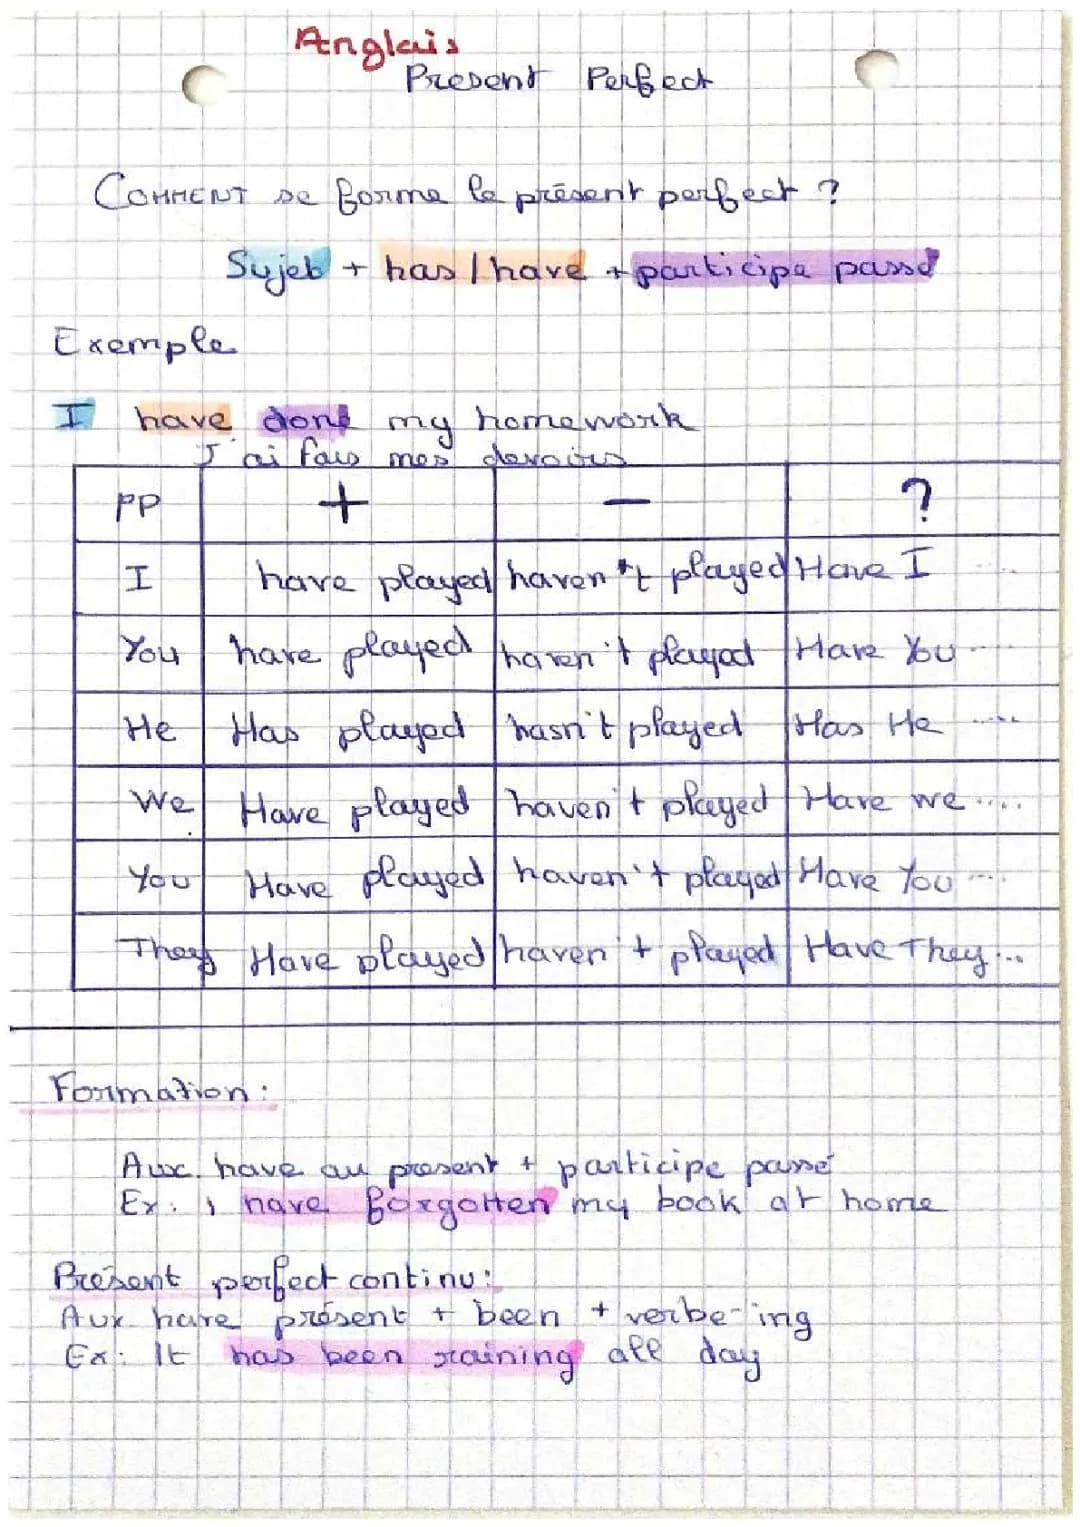 Anglais
Present Perfect
COMMENT se forme le présent perfect ?
Sujet + has / have + participe passé
Exemple
I have done my homework
J'ai fais mes devoirs
PP + — ?
I have played haven't played Have I ....
You have played haven't played Have You ....
He Has played hasn't played Has He .....
We Have played haven't played Have we ....
You Have played haven't played Have You ....
They Have played haven't played Have They ...
Formation :
Aux. have au present + participe passé
Ex : I have forgotten my book at home
Présent perfect continu :
Aux have présent + been + verbe-ing
Ex : It has been raining all day